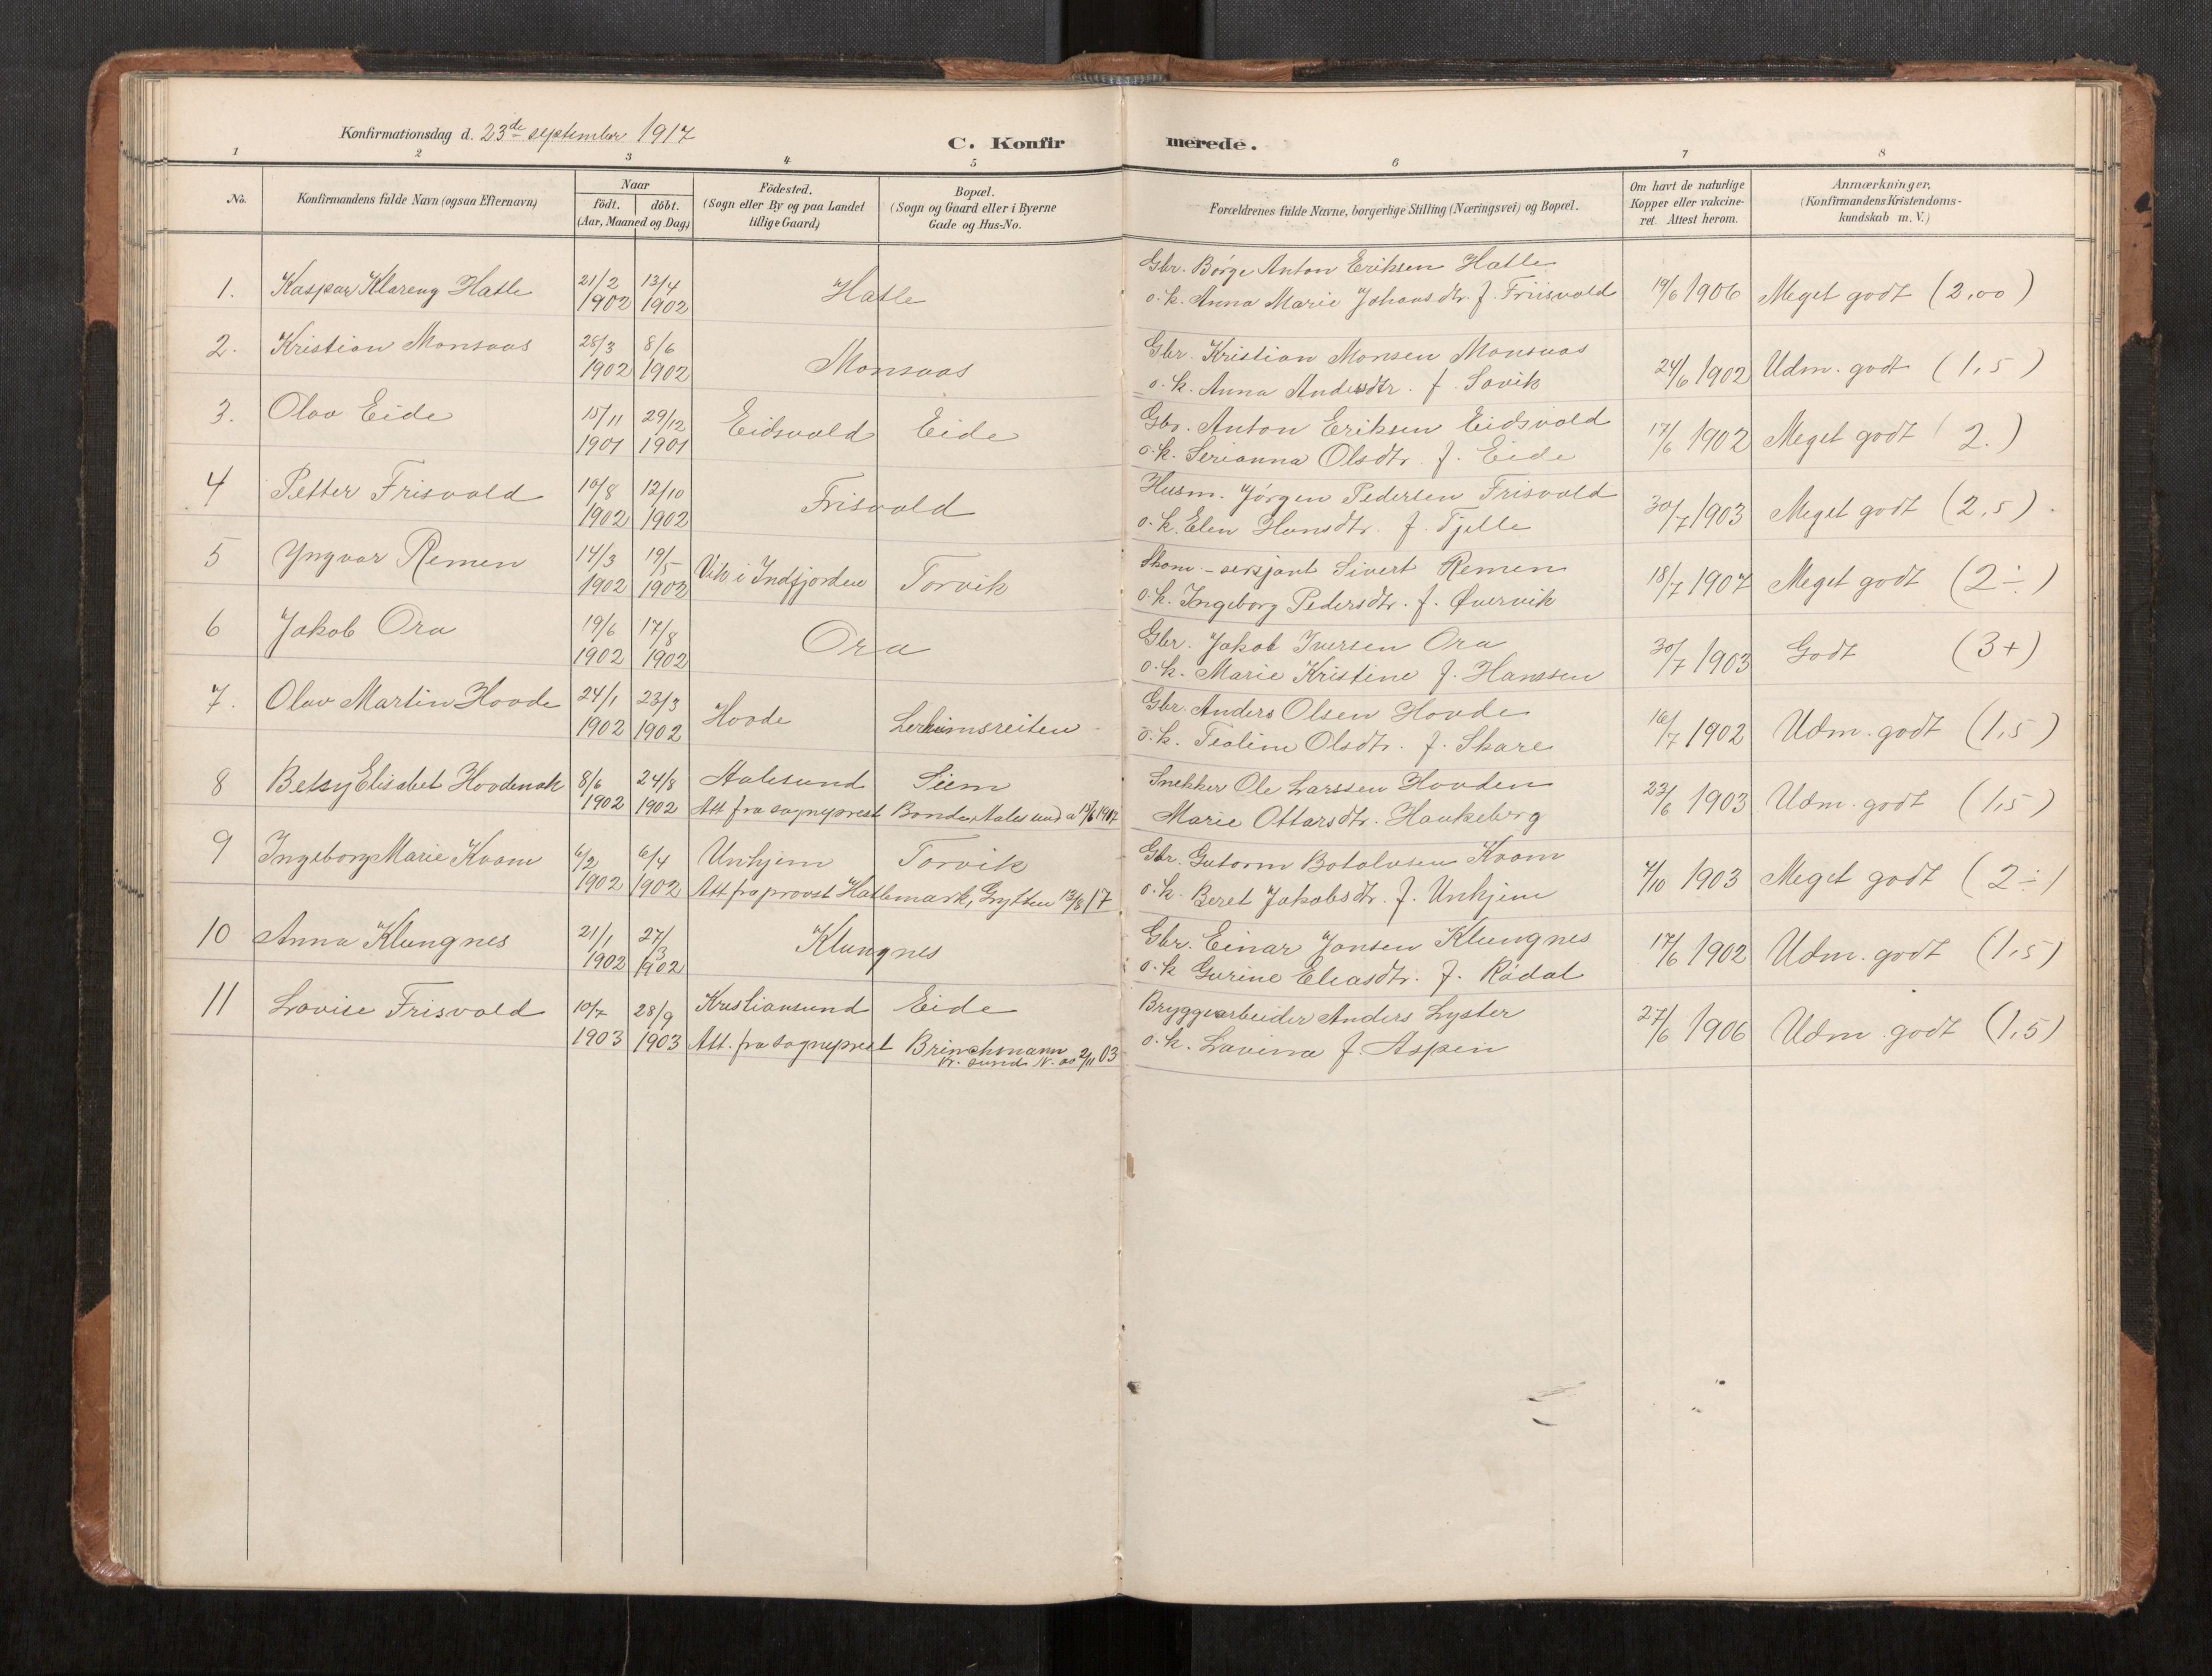 Konfirmationsdag d. 23de september 1917
C. Konfirmerede.
1 2 3 4 5 6 7 8
No.
Konfirmandens fulde Navn (ogsaa Efternavn)
Naar
födt. döbt.
(Aar, Maaned og Dag)
Födested.
(Sogn eller By og paa Landet
tillige Gaard)
Bopæl.
(Sogn og Gaard eller i Byerne
Gade og Hus-No.
Forældrenes fulde Navne, borgerlige Stilling (Næringsvei) og Bopæl.
Om havt de naturlige
Kopper eller vakcine-
ret. Attest herom.
Anmærkninger.
(Konfirmandens Kristendoms-
kundskab m. V.)
1. Kaspar Klareng Hatle 21/2 1902 13/4 1902 Hatle
Gbr. Börge Anton Eriksen Hatle
o. k. Anna Marie Johansdtr. f. Friisvold 19/6 1906 Meget godt (2,00)
2. Kristian Monsaas 28/3 1902 8/6 1902 Monsaas
Gbr. Kristian Monsen Monsaas
o. k. Anna Andersdtr. f. Sovik 24/6 1902 Udm. godt (1,5)
3. Olav Eide 15/11 1901 29/12 1901 Eidsvold Eide
Gbr. Anton Eriksen Eidsvold
o. k. Serianna Olsdtr. f. Eide 17/6 1902 Meget godt (2.)
4 Petter Frisvold 10/8 1902 12/10 1902 Frisvold
Husm. Jörgen Pedersen Frisvold
o. k. Elen Hansdtr. f. Tjelle 30/7 1903 Meget godt (2,5).
5 Yngvar Remen 14/3 1902 19/5 1902 Vik i Indfjorden Torvik
Skom. - sersjant Sivert Remen
o. k. Ingeborg Pedersdtr. f. Øvervik 18/7 1907 Meget godt (2÷)
6 Jakob Ora 19/6 1902 17/8 1902 Ora
Gbr. Jakob Iversen Ora
o. k. Marie Kristine f. Hanssen 30/7 1903 Godt (3+)
7. Olav Martin Hovde 24/1 1902 23/3 1902 Hovde Lerheimsreiten
Gbr. Anders Olsen Hovde
o. k. Teoline Olsdtr. f. Skare 16/7 1902 Udm. godt (1,5)
8 Betsy Elisabet Hovdenak 8/6 1902 24/8 1902 Aalesund Siem
Att fra sogneprest Bonde, Aalesund 1917
Snekker Ole Larssen Hovden
Marie Ottarsdtr. Haukeberg 23/6 1903 Udm. godt (1,5)
9 Ingeborg Marie Kvam 6/2 1902 6/4 1902 Unhjem Torvik
Att fra provst Hatlemark, Grytten 13/8 17
Gbr. Gutorm Botolvsen Kvam
o. k. Beret Jakobsdtr. f. Unhjem 7/10 1903 Meget godt (2÷)
10 Anna Klungnes 21/1 1902 27/3 1902 Klungnes
Gbr. Einar Jonsen Klungnes
o. k. Gurine Eliasdtr. f. Rödal 17/6 1902 Udm. godt (1,5)
11 Lovise Frisvold 10/7 1903 28/9 1903 Kristiansund Eide
Att. fra sogneprest Brinchmann
Kr. sund N. 2/11 03
Bryggearbeider Anders Lyster
o. k. Lavina f. Aspen 27/6 1906 Udm. godt (1,5)